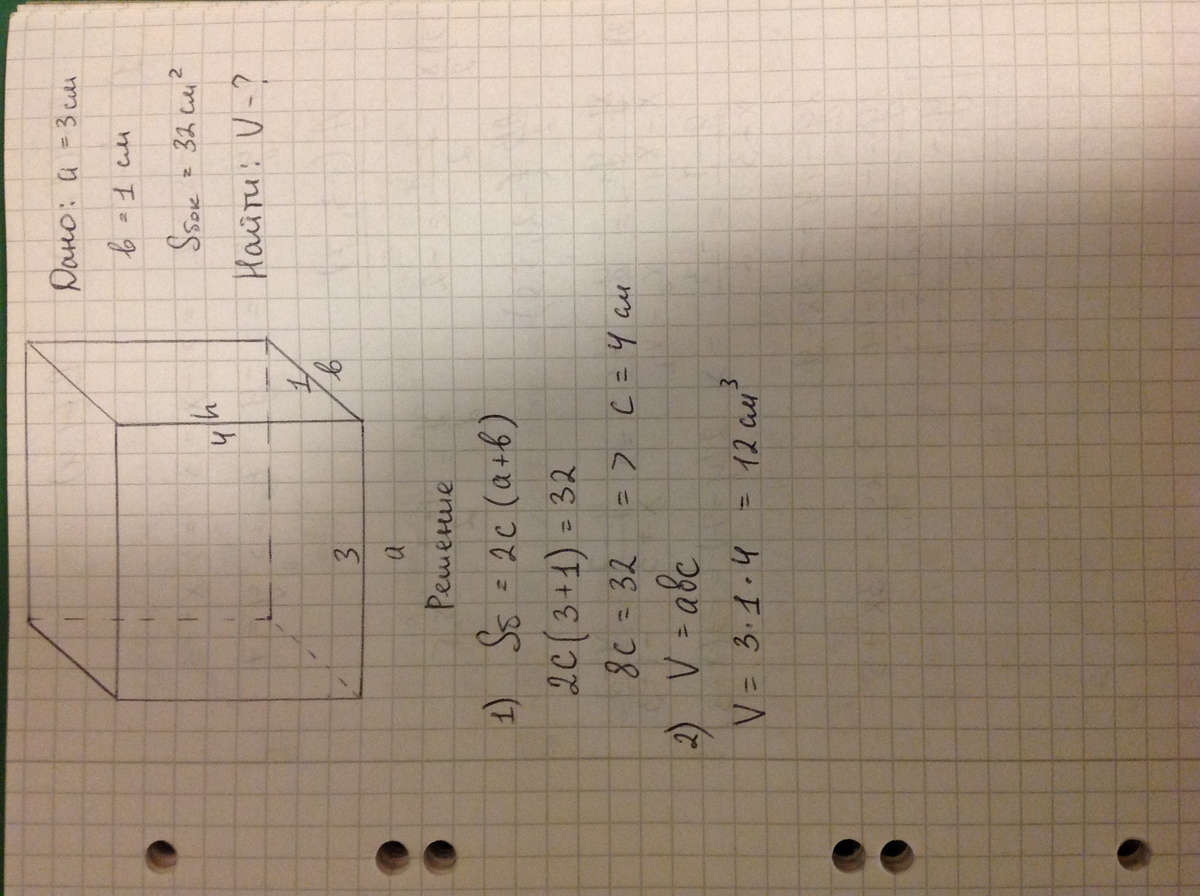 Дано: a = 3 см
в = 1 см
Sбок = 32 см²
Найти: V - ?
4
h
1
в
3
a
Решение
1) Sб = 2c (a+в)
2c(3+1) = 32
8c = 32 => c = 4 см
2) V = aвc
V = 3·1·4 = 12 см³